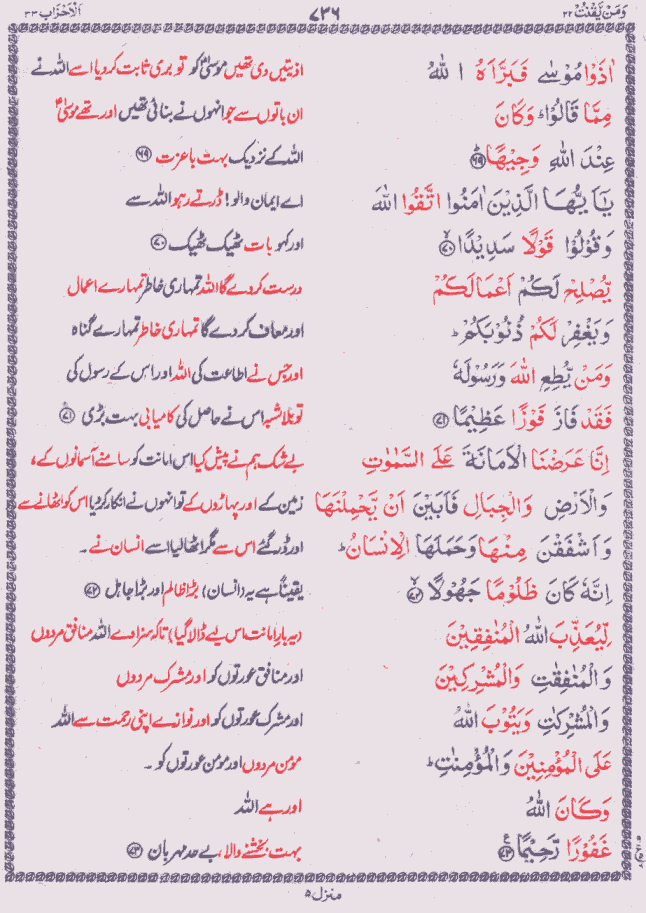 وَمَنْ يَّقْنُتْ ۲۲ ۷۳۶ اَلْاَحْزَاب ۳۳
اٰذَوْا مُوْسٰى فَبَرَّاَهُ اللّٰهُ اذیتیں دی تھیں موسیٰؑ کو تو بری ثابت کر دیا اسے اللہ نے
مِمَّا قَالُوْا ؕ وَكَانَ ان باتوں سے جو انہوں نے بنائی تھیں اور تھے موسیٰؑ
عِنْدَ اللّٰهِ وَجِيْهًا ۶۹ اللہ کے نزدیک بہت باعزت ۶۹
يٰۤاَيُّهَا الَّذِيْنَ اٰمَنُوا اتَّقُوا اللّٰهَ اے ایمان والو! ڈرتے رہو اللہ سے
وَقُوْلُوْا قَوْلًا سَدِيْدًا ۷۰ اور کہو بات ٹھیک ٹھیک ۷۰
يُّصْلِحْ لَكُمْ اَعْمَالَكُمْ درست کر دے گا اللہ تمہاری خاطر تمہارے اعمال
وَيَغْفِرْ لَكُمْ ذُنُوْبَكُمْ ؕ اور معاف کر دے گا تمہاری خاطر تمہارے گناہ
وَمَنْ يُّطِعِ اللّٰهَ وَرَسُوْلَهٗ اور جس نے اطاعت کی اللہ اور اس کے رسول کی
فَقَدْ فَازَ فَوْزًا عَظِيْمًا ۷۱ تو بلاشبہ اس نے حاصل کی کامیابی بہت بڑی ۷۱
اِنَّا عَرَضْنَا الْاَمَانَةَ عَلَى السَّمٰوٰتِ بے شک ہم نے پیش کیا اس امانت کو سامنے آسمانوں کے،
وَالْاَرْضِ وَالْجِبَالِ فَاَبَيْنَ اَنْ يَّحْمِلْنَهَا زمین کے اور پہاڑوں کے تو انہوں نے انکار کر دیا اس کو اٹھانے سے
وَاَشْفَقْنَ مِنْهَا وَحَمَلَهَا الْاِنْسَانُ ؕ اور ڈر گئے اس سے مگر اٹھا لیا اسے انسان نے۔
اِنَّهٗ كَانَ ظَلُوْمًا جَهُوْلًا ۷۲ یقیناً ہے یہ (انسان) بڑا ظالم اور بڑا جاہل ۷۲
لِّيُعَذِّبَ اللّٰهُ الْمُنٰفِقِيْنَ (یہ بار امانت اس لیے ڈالا گیا) تاکہ سزا دے اللہ منافق مردوں
وَالْمُنٰفِقٰتِ وَالْمُشْرِكِيْنَ اور منافق عورتوں کو اور مشرک مردوں
وَالْمُشْرِكٰتِ وَيَتُوْبَ اللّٰهُ اور مشرک عورتوں کو اور نوازے اپنی رحمت سے اللہ
عَلَى الْمُؤْمِنِيْنَ وَالْمُؤْمِنٰتِ ؕ مومن مردوں اور مومن عورتوں کو۔
وَكَانَ اللّٰهُ اور ہے اللہ
غَفُوْرًا رَّحِيْمًا ۷۳ بہت بخشنے والا، بے حد مہربان ۷۳
منزل ۵